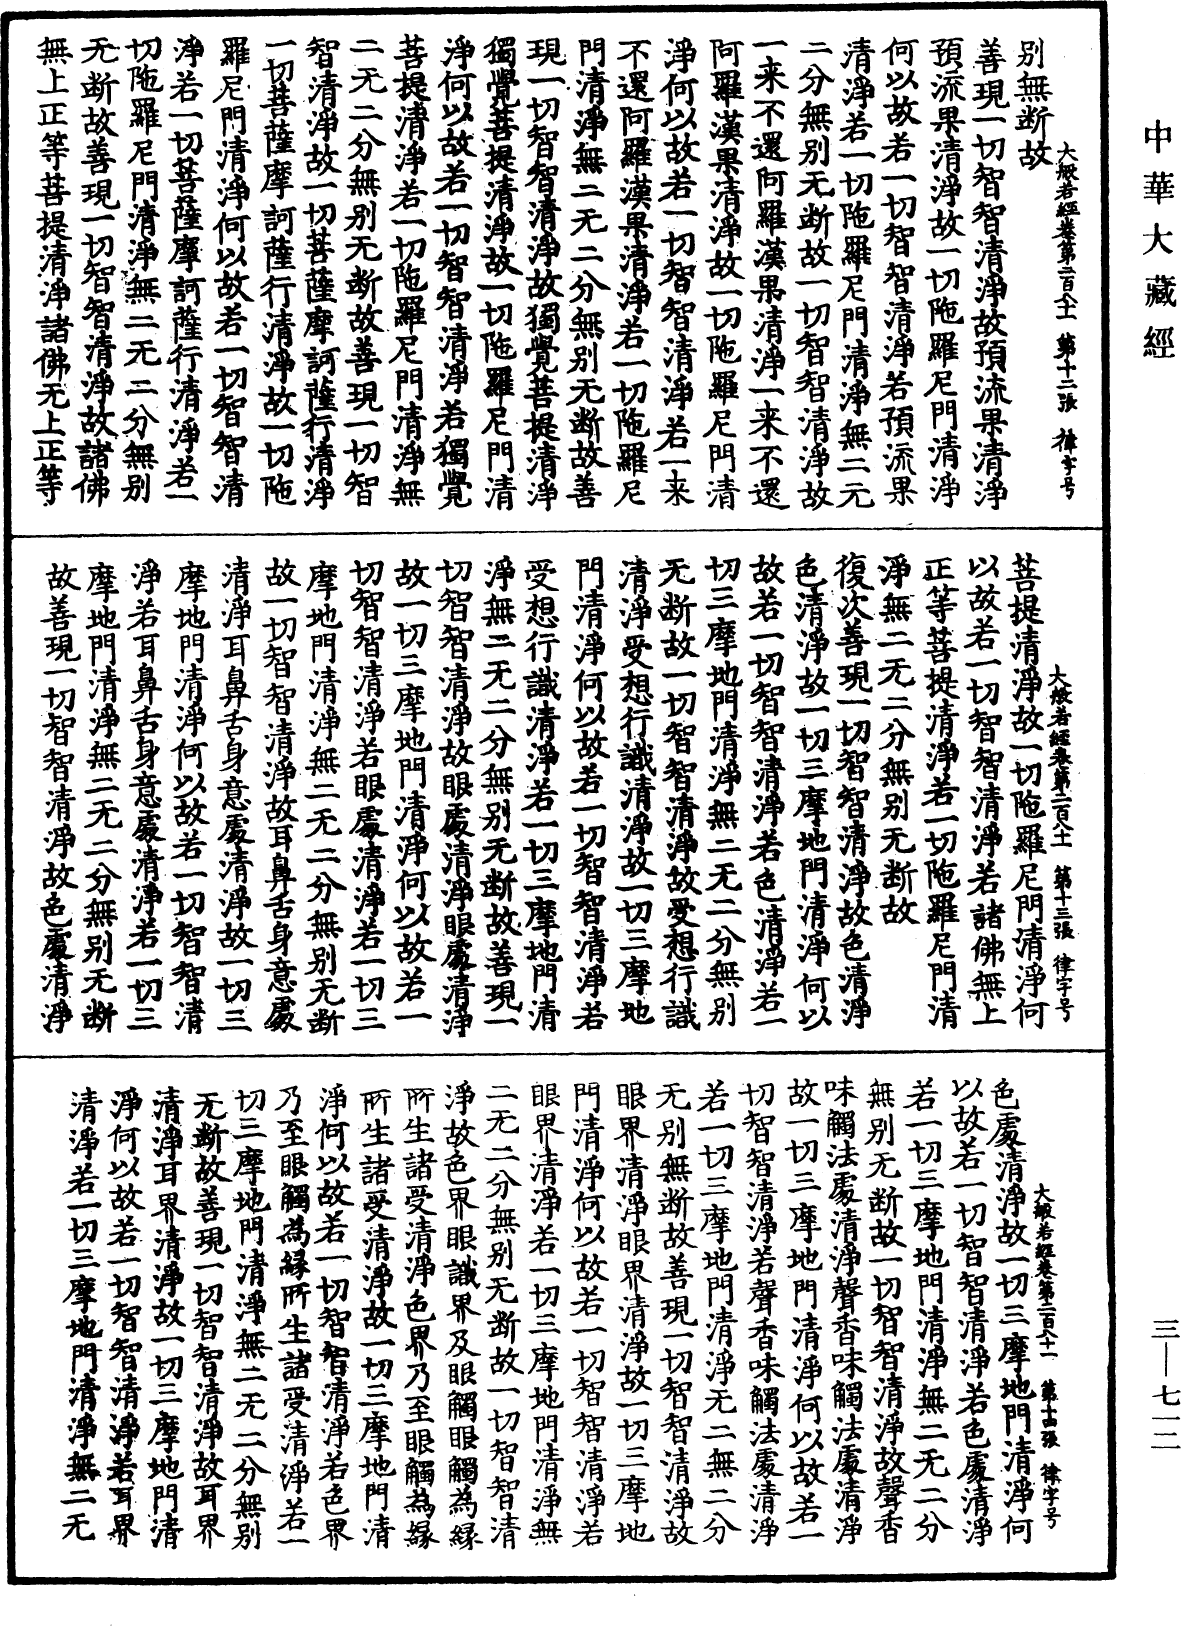 中華大藏經
三—七一二
大般若經卷第二百八十一　第十二張　律字号
别無断故
善現一切智智清淨故預流果清淨
預流果清淨故一切陁羅尼門清淨
何以故若一切智智清淨若預流果
清淨若一切陁羅尼門清淨無二无
二分無别无断故一切智智清淨故
一来不還阿羅漢果清淨一来不還
阿羅漢果清淨故一切陁羅尼門清
淨何以故若一切智智清淨若一来
不還阿羅漢果清淨若一切陁羅尼
門清淨無二无二分無别无断故善
現一切智智清淨故獨覺菩提清淨
獨覺菩提清淨故一切陁羅尼門清
淨何以故若一切智智清淨若獨覺
菩提清淨若一切陁羅尼門清淨無
二无二分無别无断故善現一切智
智清淨故一切菩薩摩訶薩行清淨
一切菩薩摩訶薩行清淨故一切陁
羅尼門清淨何以故若一切智智清
淨若一切菩薩摩訶薩行清淨若一
切陁羅尼門清淨無二无二分無别
无断故善現一切智智清淨故諸佛
無上正等菩提清淨諸佛无上正等
大般若經卷第二百八十一　第十三張　律字号
菩提清淨故一切陁羅尼門清淨何
以故若一切智智清淨若諸佛無上
正等菩提清淨若一切陁羅尼門清
淨無二无二分無别无断故
復次善現一切智智清淨故色清淨
色清淨故一切三摩地門清淨何以
故若一切智智清淨若色清淨若一
切三摩地門清淨無二无二分無别
无断故一切智智清淨故受想行識
清淨受想行識清淨故一切三摩地
門清淨何以故若一切智智清淨若
受想行識清淨若一切三摩地門清
淨無二无二分無别无断故善現一
切智智清淨故眼處清淨眼處清淨
故一切三摩地門清淨何以故若一
切智智清淨若眼處清淨若一切三
摩地門清淨無二无二分無别无断
故一切智智清淨故耳鼻舌身意處
清淨耳鼻舌身意處清淨故一切三
摩地門清淨何以故若一切智智清
淨若耳鼻舌身意處清淨若一切三
摩地門清淨無二无二分無别无断
故善現一切智智清淨故色處清淨
大般若經卷第二百八十一　第十四張　律字号
色處清淨故一切三摩地門清淨何
以故若一切智智清淨若色處清淨
若一切三摩地門清淨無二无二分
無别无断故一切智智清淨故聲香
味觸法處清淨聲香味觸法處清淨
故一切三摩地門清淨何以故若一
切智智清淨若聲香味觸法處清淨
若一切三摩地門清淨无二無二分
无别無断故善現一切智智清淨故
眼界清淨眼界清淨故一切三摩地
門清淨何以故若一切智智清淨若
眼界清淨若一切三摩地門清淨無
二无二分無别无断故一切智智清
淨故色界眼識界及眼觸眼觸為緣
所生諸受清淨色界乃至眼觸為緣
所生諸受清淨故一切三摩地門清
淨何以故若一切智智清淨若色界
乃至眼觸為緣所生諸受清淨若一
切三摩地門清淨無二无二分無别
无断故善現一切智智清淨故耳界
清淨耳界清淨故一切三摩地門清
淨何以故若一切智智清淨若耳界
清淨若一切三摩地門清淨無二无